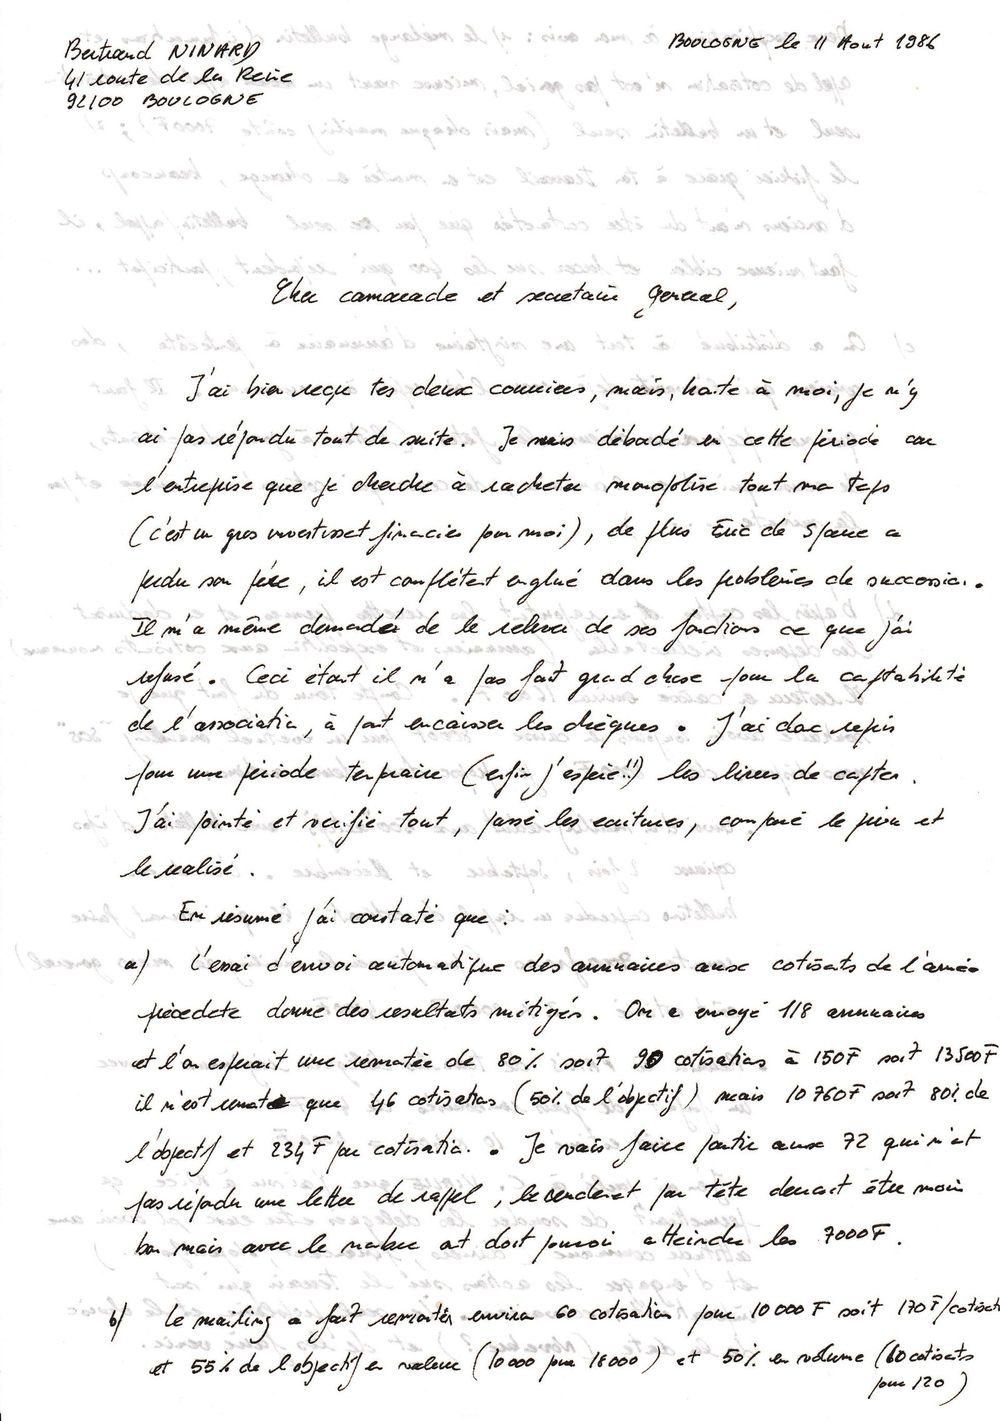 Bertrand NINARD
41 route de la Reine
92100 BOULOGNE
BOULOGNE le 11 Aout 1986
Cher camarade et secretaire general,
J'ai bien reçu tes deux courriers, mais, honte à moi, je n'y
ai pas répondu tout de suite. Je suis débordé en cette période car
l'entreprise que je cherche à racheter monopolise tout mon temps
(c'est un gros investissement financier pour moi), de plus Eric de a
perdu son père, il est complétement englué dans les problèmes de succession.
Il m'a même demandé de le relever de ses fonctions ce que j'ai
refusé. Ceci étant il n'a pas fait grand chose pour la comptabilité
de l'association, à part encaisser les chèques. J'ai donc repris
pour une période temporaire (enfin j'espère!!) les livres de comptes.
J'ai pointé et verifié tout, passé les ecritures, comparé le prévu et
le realisé.
En résumé j'ai constaté que :
a) L'essai d'envoi automatique des annuaires aux cotisants de l'année
précedente donne des resultats mitigés. On a envoyé 118 annuaires
et l'on esperait une remontée de 80% soit 90 cotisations à 150F soit 13500F
il n'est remonté que 46 cotisations (50% de l'objectif) mais 10760F soit 80% de
l'objectif et 234F par cotisation. Je vais faire partir aux 72 qui n'ont
pas répondu une lettre de rappel, le rendement par tête devrait être moins
bon mais avec le nombre on doit pouvoir atteindre les 7000F.
b) Le mailing a fait remonter environ 60 cotisations pour 10000F soit 170F/cotisat
et 55% de l'objectif en valeur (10000 pour 18000) et 50% en volume (60 cotisants
pour 120)